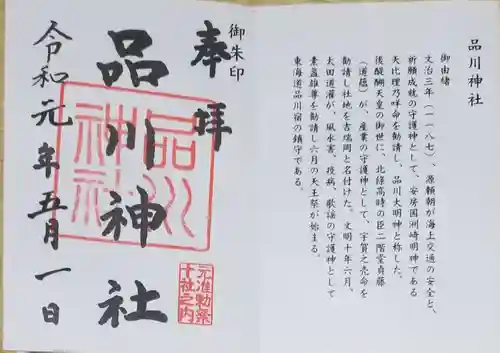 品川神社
御由緒
文治三年(一一八七)、源頼朝が海上交通の安全と、
祈願成就の守護神として、安房国洲崎明神である
天比理乃咩命を勧請し、品川大明神と称した。
後醍醐天皇の御世に、北條高時の臣二階堂貞藤
(道蘊)が、産業の守護神として、宇賀之売命を
勧請し社地を吉端岡と名付けた。文明十年六月、
太田道灌が、風水害、疫病、歌謡の守護神として
素盞雄尊を勧請し六月の天王祭が始まる。
東海道品川宿の鎮守である。
御朱印
奉拝
品川神社
品川
神社
元准勅祭
十社之内
令和元年五月一日